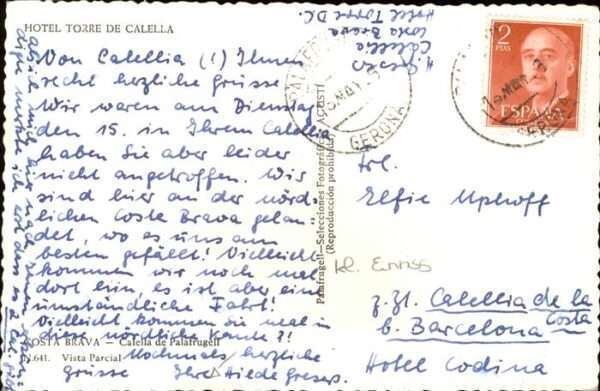 HOTEL TORRE DE CALELLA
Von Calellia (!) Ihnen
recht herzliche Grüsse
Wir waren am Dienstag
den 15. in Ihrem Calellia
haben Sie aber leider
nicht angetroffen. Wir
sind hier an der nörd-
lichen Costa Brava gelan-
det, wo es uns am
besten gefällt! Vielleicht
kommen wir noch mal
dort hin, es ist aber eine
umständliche Fahrt!
Vielleicht kommen Sie mal in
diese nördliche Kante?!
Nochmals herzliche
Grüsse Ihre Hilde
COSTA BRAVA - Calella de Palafrugell
Vista Parcial
Palafrugell—Selecciones Fotográficas
(Reproducción prohibida)
Calella
Costa Brava
Hotel Torre D.C.
GERONA
2
PTAS
ESPAÑA
Frl.
Elfie Uphoff
z. Zt. Calellia de la
Costa
b. Barcelona
Hotel Codina